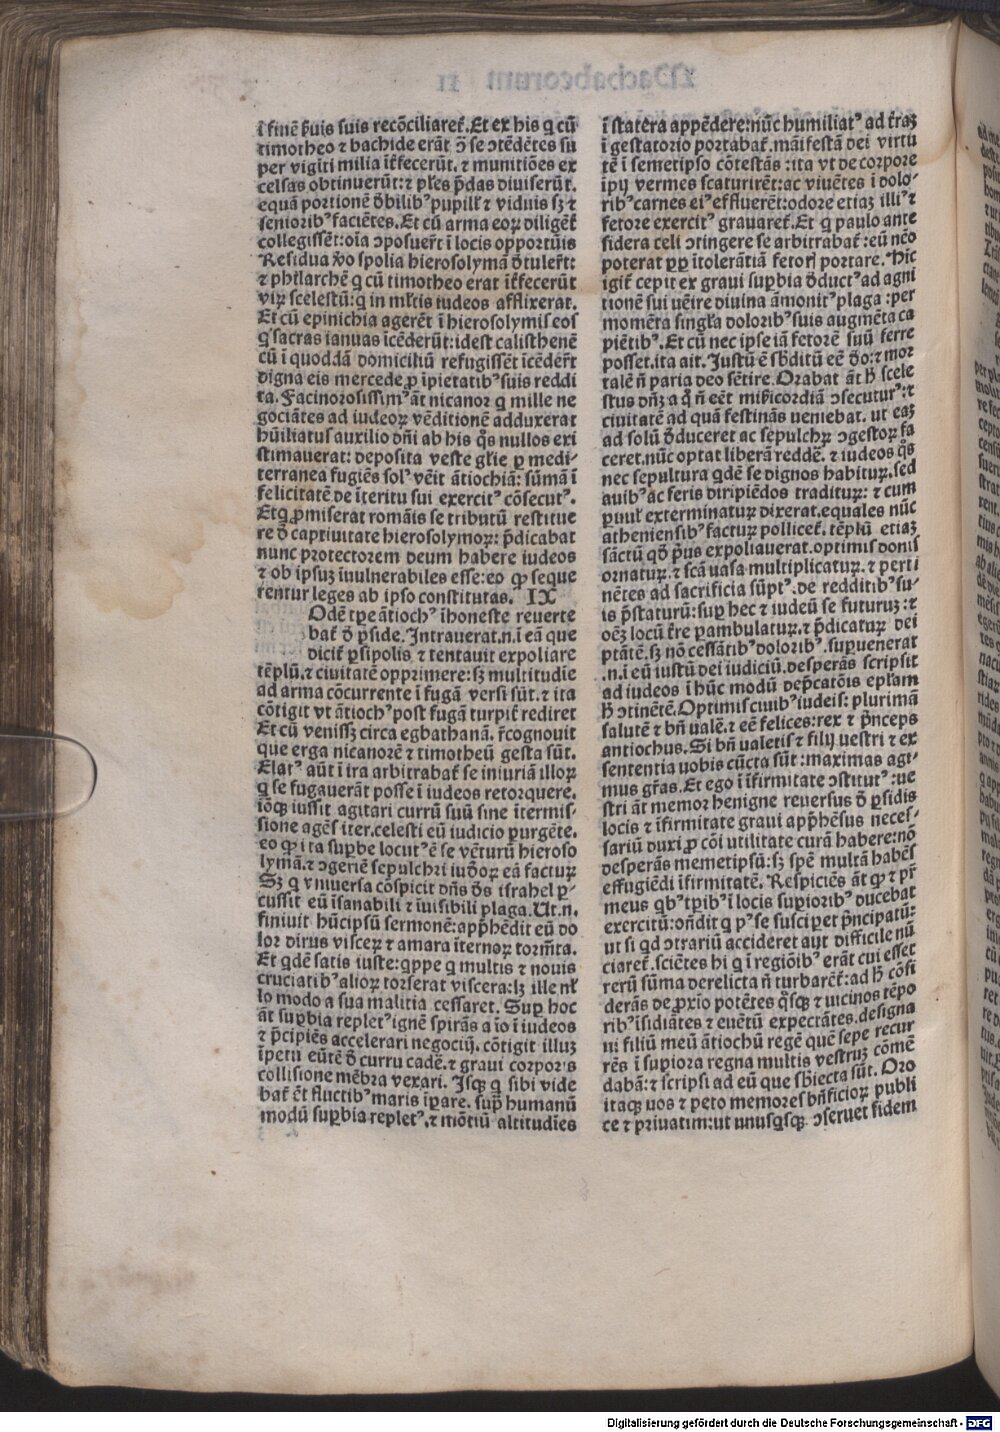 ī finē ẜuis suis recōciliaret᷑. Et ex his q̄ cū
timotheo ⁊ bachide erāt ꝯ̄ se ↄtēdētes su
per vigīti milia īt᷑fecerūt. ⁊ munitiōes ex
celsas obtinuerūt: ⁊ pl᷑es p̄das diuiserūt.
equā portionē ꝺ̄bilibꝰ pupill᷑ ⁊ viduis sꝫ ⁊
senioribꝰ faciētes. Et cū arma eoꝝ diligēt᷑
collegissēt: oīa ↄposuer̄t ī locis opportūis
Residua v̄o spolia hierosolymā ꝺ̄tuler̄t:
⁊ philarchē q̄ cū timotheo erat īt᷑fecerūt
viꝝ scelestū: q̄ in ml᷑tis iudeos afflixerat.
Et cū epinichia agerēt ī hierosolymis eos
q̄ sacras ianuas īcēderūt: idest calisthenē
cū ī quoddā domiciliū refugissēt īcēder̄t
digna eis mercede ꝓ īpietatibꝰ suis reddi
ta. Facinorosissimꝰ āt nicanor q̄ mille ne
gociātes ad iudeoꝝ vēditionē adduxerat
hūiliatus auxilio dn̄i ab his q̄s nullos exi
stimauerat: deposita veste gl᷑ie ꝑ medi-
terranea fugiēs solꝰ vēit ātiochiā: sūmā ī
felicitatē de īteritu sui exercitꝰ cōsecutꝰ.
Etq̄ ꝓmiserat romāis se tributū restitue
re ꝺ̄ captiuitate hierosolymoꝝ: p̄dicabat
nunc protectorem deum habere iudeos
⁊ ob ipsuꝫ īuulnerabiles esse: eo ꝙ seque
rentur leges ab ipso constitutas. IX
Odē tp̄e ātiochꝰ īhoneste reuerte
bat᷑ ꝺ̄ ꝑside. Intrauerat .n. ī eā que
dicit᷑ ꝑsipolis ⁊ tentauit expoliare
tēplū. ⁊ ciuitatē opprimere: sꝫ multitudīe
ad arma cōcurrente ī fugā versi sūt. ⁊ ita
cōtigit vt ātiochꝰ post fugā turpit᷑ rediret
Et cū venissꝫ circa egbathanā. r̄cognouit
que erga nicanorē ⁊ timotheū gesta sūt.
Elatꝰ aūt ī ira arbitrabat᷑ se iniuriā illoꝝ
q̄ se fugauerāt posse ī iudeos retorquere.
iōqꝫ iussit agitari currū suū sine ītermis-
sione agēs iter. celesti eū iudicio ꝑurgēte.
eo ꝙ ita suꝑbe locutꝰ ē se vēturū hieroso
lymā. ⁊ ↄgerīē sepulchri iuꝺ̄oꝝ eā facturꝫ
Sꝫ q̄ vniuersa cōspicit dn̄s ꝺ̄s israhel ꝑ-
cussit eū īsanabili ⁊ īuisibili plaga. Ut .n.
finiuit hūcipsū sermonē: app̄hēdit eū do
lor dirus visceꝝ ⁊ amara īternoꝝ torm̄ta.
Et qdē satis iuste: qppe q̄ multis ⁊ nouis
cruciatibꝰ alioꝝ torserat viscera: lꝫ ille nl᷑
lo modo a sua malitia cessaret. Suꝑ hoc
āt suꝑbia repletꝰ ignē spirās aīo ī iudeos
⁊ p̄cipiēs accelerari negociū. cōtigit illuꝫ
īpetu eūtē ꝺ̄ curru cadē. ⁊ graui corporis
collisione mēbra vexari. Isqꝫ q̄ sibi vide
bat᷑ ēt fluctibꝰ maris īꝑare. supͣ humanū
modū suꝑbia repletꝰ. ⁊ mōtiū altitudīes
ī statera appēdere: nūc humiliatꝰ ad t᷑raꝫ
ī gestatorio portabat᷑. māifestā dei virtu
tē ī semetipso cōtestās: ita vt de corpore
īpij vermes scaturirēt: ac viuētes ī dolo-
ribꝰ carnes eiꝰ effluerēt: odore etiaꝫ illiꝰ ⁊
fetore exercitꝰ grauaret᷑. Et q̄ paulo ante
sidera celi ↄtingere se arbitrabat᷑: eū nēo
poterat ꝓp̄ ītolerātiā fetorꝭ portare. Hīc
igit᷑ cepit ex graui suꝑbia ꝺ̄ductꝰ ad agni
tionē sui uēire diuina āmonitꝰ plaga: per
momēta singl᷑a doloribꝰ suis augmēta ca
piētibꝰ. Et cū nec ipse iā fetorē suū ferre
posset. ita ait. Justū ē sb̄ditū eē ꝺ̄o: ⁊ mor
talē n̄ paria deo sētire. Orabat āt h̄ scele
stus dn̄ꝫ a q̄ n̄ eēt mi᷑icordiā ↄsecuturꝰ: ⁊
ciuitatē ad quā festinās ueniebat. ut eaꝫ
ad solū ꝺ̄duceret ac sepulchꝝ ↄgestoꝝ fa
ceret. nūc optat liberā reddē. ⁊ iudeos q̄s
nec sepultura qdē se dignos habituꝝ. sed
auibꝰ ac feris diripiēdos tradituꝝ: ⁊ cum
ꝑuul᷑ exterminatuꝝ dixerat. equales nūc
atheniensibꝰ factuꝝ pollicet᷑. tēplū etiaꝫ
sāctū qd̄ p̄us expoliauerat. optimis donis
ornatuꝝ. ⁊ scā uasa multiplicatuꝝ. ⁊ perti
nētes ad sacrificia sūptꝰ. de redditibꝰ su-
is p̄staturū: suꝑ hec ⁊ iudeū se futuruꝫ: ⁊
oēꝫ locū t᷑re ꝑambulatuꝝ. ⁊ p̄dicatuꝝ dei
ptātē. sꝫ nō cessātibꝰ doloribꝰ. suꝑuenerat
.n. ī eū iustū dei iudiciū. desperās scripsit
ad iudeos ī hūc modū dep̄catōis epl᷑am
h̄ ↄtinētē. Optimis ciuibꝰ iudeis: plurimā
salutē ⁊ bn̄ ualē. ⁊ eē felices: rex ⁊ p̄nceps
antiochus. Si bn̄ ualetis ⁊ filij uestri ⁊ ex
sententia uobis cūcta sūt: maximas agi-
mus gr̄as. Et ego ī īfirmitate ↄstitutꝰ: ue
stri āt memor benigne reuersus ꝺ̄ ꝑsidis
locis ⁊ īfirmitate graui app̄hēsus neces-
sariū duxi ꝓ cōi utilitate curā habere: nō
desperās memetipsū: sꝫ spē multā habēs
effugiēdi īfirmitatē. Respiciēs āt ꝙ ⁊ pr̄
meus qbꝰ tp̄ibꝰ ī locis suꝑioribꝰ ducebat
exercitū: on̄dit q̄ pꝰ se susciꝑet p̄ncipatū:
ut si qd ↄtrariū accideret aut difficile nū
ciaret᷑. sciētes hi q̄ ī regiōibꝰ erāt cui esset
rerū sūma derelicta n̄ turbarēt᷑: ad h̄ cōsi
derās de ꝓxīo potētes q̄sqꝫ ⁊ uicinos tēpo
ribꝰ īsidiātes ⁊ euētū expectātes. designa
ui filiū meū ātiochū regē quē sepe recur
rēs ī suꝑiora regna multis vestruꝫ cōmē
dabā: ⁊ scripsi ad eū que sb̄iecta sūt. Oro
itaqꝫ uos ⁊ peto memores bn̄ficioꝝ publi
ce ⁊ priuatim: ut unusqsqꝫ ↄseruet fidem
Digitalisierung gefördert durch die Deutsche Forschungsgemeinschaft - DFG